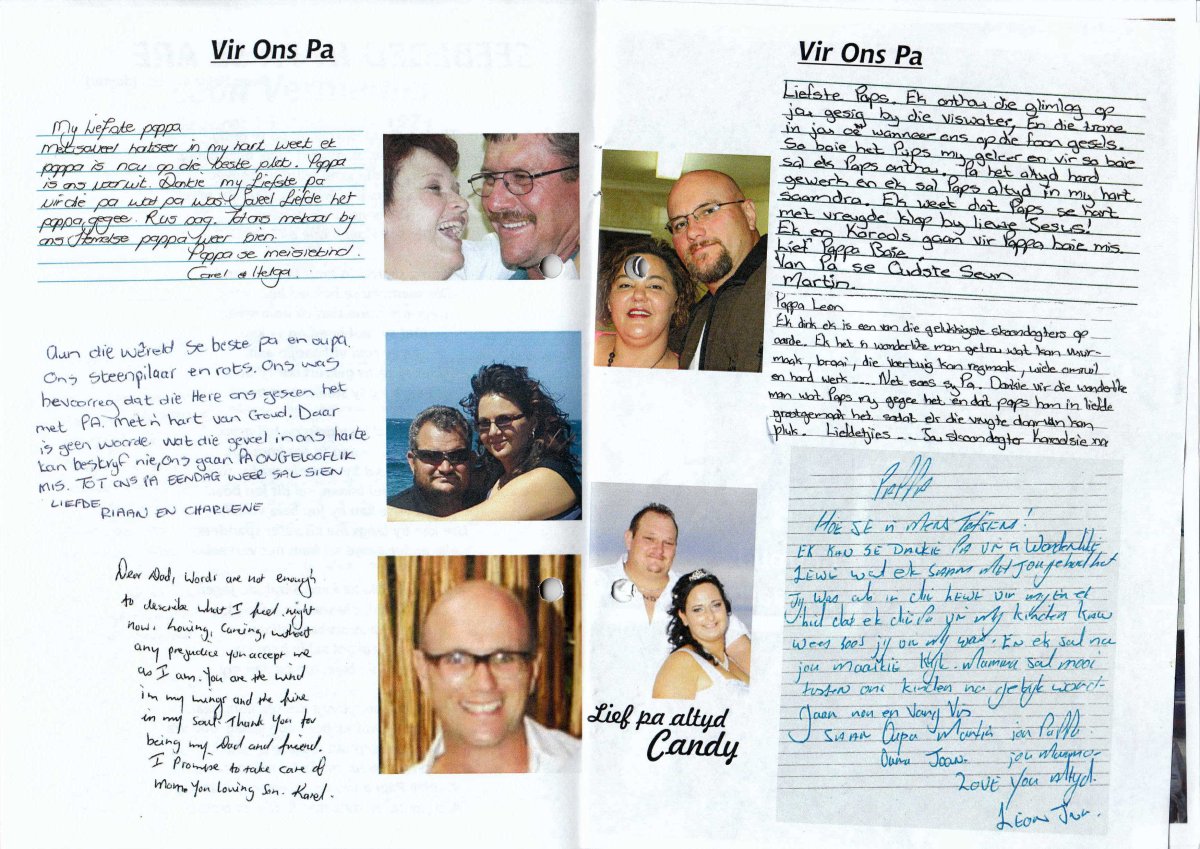 Vir Ons Pa
My Liefste pappa
Met soveel hartseer in my hart weet ek
pappa is nou op die beste plek. Pappa
is ons vooruit. Dankie my Liefste pa
vir die pa wat pa was! Soveel Liefde het
pappa gegee. Rus sag. Tot ons mekaar by
ons Hemelse pappa weer sien
Pappa se meisiekind.
Carel & Helga.
Aan die wêreld se beste pa en oupa.
Ons steenpilaar en rots. Ons was
bevoorreg dat die Here ons geseën het
met PA. Met 'n hart van Goud. Daar
is geen woorde wat die gevoel in ons harte
kan beskryf nie, ons gaan PA ONGELOOFLIK
MIS. TOT ONS PA EENDAG WEER SAL SIEN
LIEFDE
RIAAN EN CHARLENE
Dear Dad, words are not enough
to describe what I feel right
now. Loving, Caring, without
any prejudice you accept me
as I am. You are the wind
in my wings and the fire
in my soul. Thank you for
being my Dad and friend.
I Promise to take care of
Mom. You loving Son. Karel.
Vir Ons Pa
Liefste Paps. Ek onthou die glimlag op
jou gesig by die viswater, En die trane
in jou oë wanneer ons op die foon gesels.
So baie het Paps my geleer en vir so baie
sal ek Paps onthou. Pa het altyd hard
gewerk en ek sal Paps altyd in my hart
saamdra. Ek weet dat Paps se hart
met vreugde klop by liewe Jesus!
Ek en Karools gaan vir Pappa baie mis.
Lief Pappa Baie.
Van Pa se Oudste Seun
Martin.
Pappa Leon
Ek dink ek is een van die gelukkigste skoondogters op
aarde. Ek het 'n wonderlike man getrou wat kan vuur-
maak, braai, die voertuig kan regmaak, wiele omruil
en hard werk ---- Net soos sy Pa. Dankie vir die wonderlike
man wat Paps my gegee het en dat paps hom in liefde
grootgemaak het sodat ek die vrugte daarvan kan
pluk. Liefdetjies -- Jou skoondogter
Lief pa altyd
Candy
PAPPA
HOE SE 'n MENS TOTSIENS!
EK KAN SE DANKIE PA VIR 'n Wonderlike
LEWE wat ek SAAM met Jou gehad het
Jy was als in die LEWE vir my en ek
bid dat ek die Pa vir my kinders kan
wees soos jy vir my was. En ek sal na
jou kyk. Mamma sal mooi
ons kinders na
Gaan nou en Vang Vis
SAAM Oupa Martin jou PAPPA
Ouma Joan. jou Mamma.
LOVE YOU Altyd.
LEON